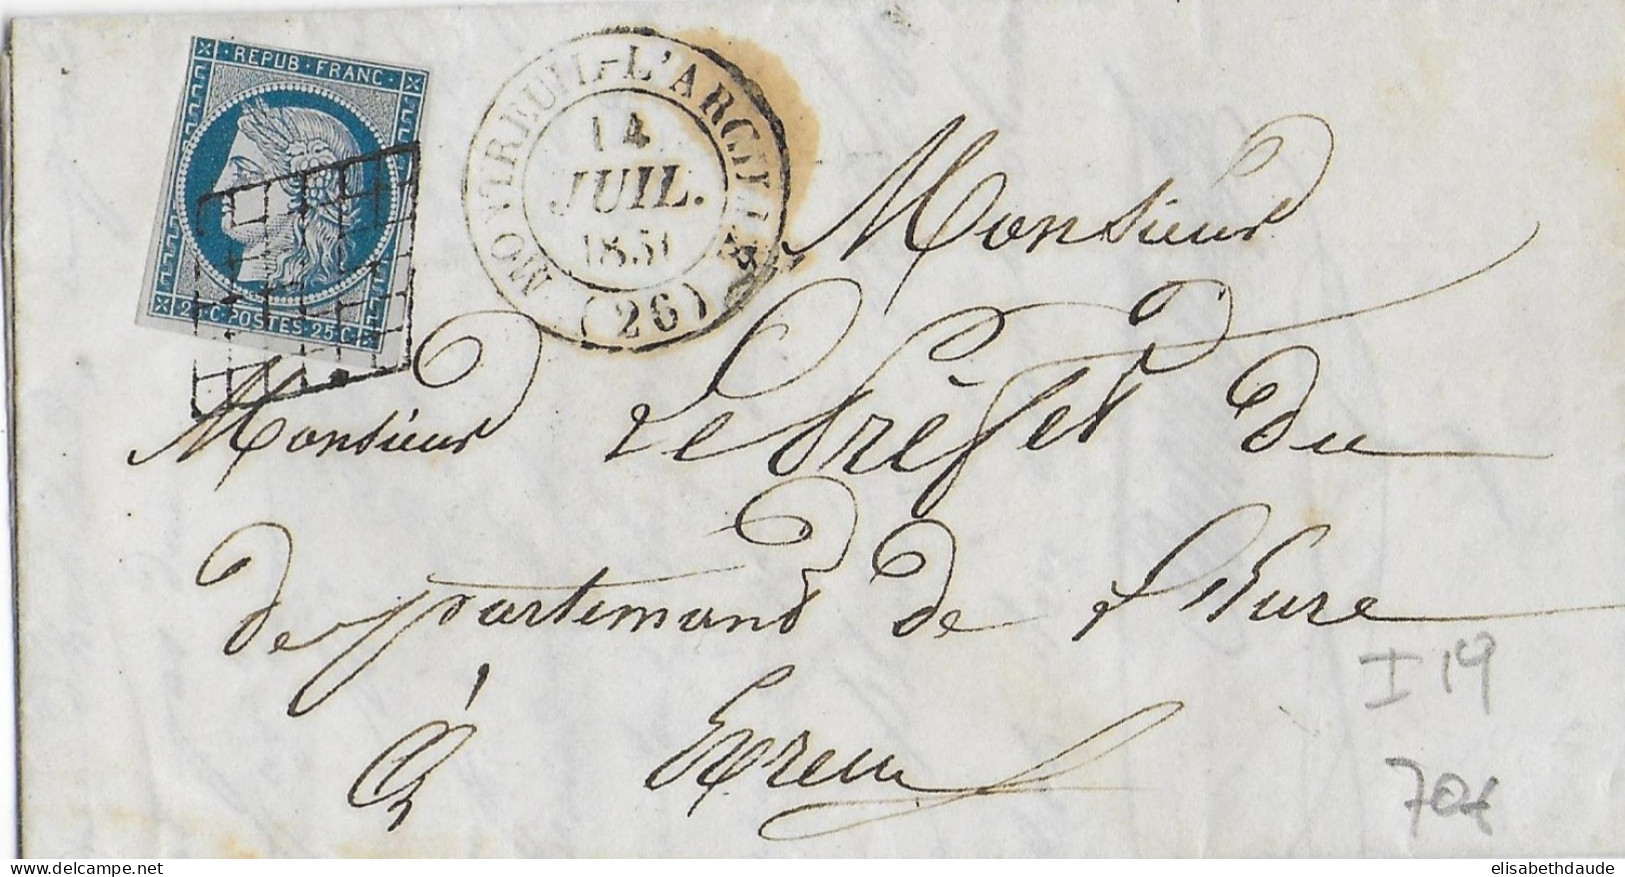 REPUB·FRANC·
25·C·POSTES·25·C·
MONTREUIL-L'ARGILLE
14
JUIL.
1850
(26)
Monsieur
Monsieur le Préfet du
département de l'Eure
à Evreux
I 19
70€
elisabethdaude
delcampe.net